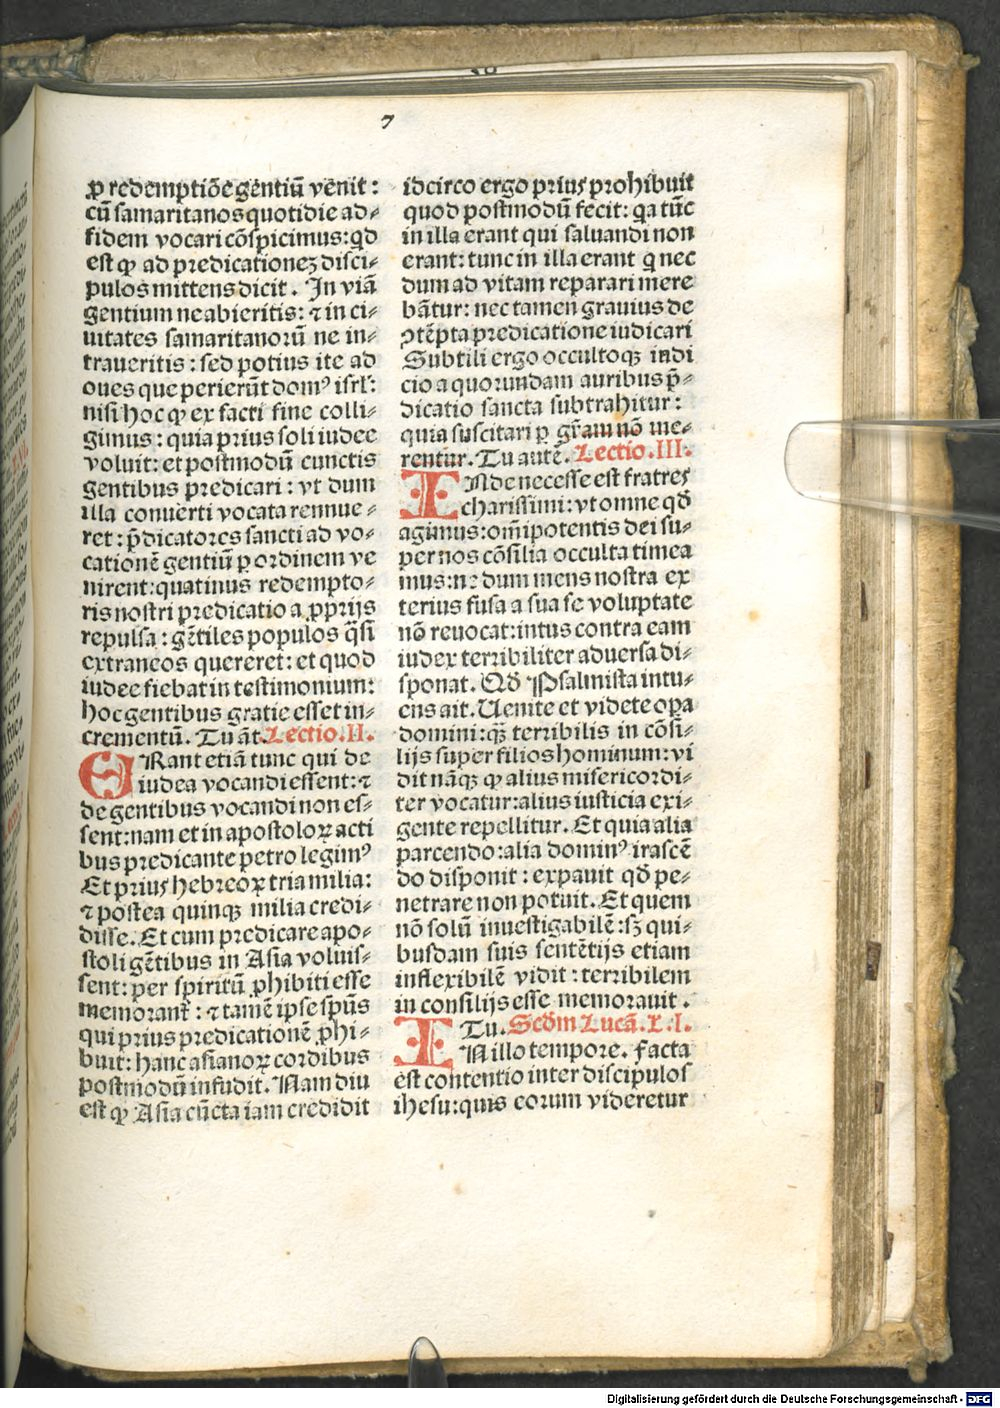 7
ꝓ redemptiōe gentiū venit:
cū samaritanos quotidie ad-
fidem vocari cōspicimus: qd
est ꝙ ad predicationeȝ disci-
pulos mittens dicit. In viā
gentium ne abieritis: ⁊ in ci-
uitates samaritanorū ne in-
traueritis: sed potius ite ad
oues que perierūt domꝰ isrl̄:
nisi hoc ꝙ ex facti fine colli-
gimus: quia prius soli iudee
voluit: et postmodū cunctis
gentibus predicari: vt dum
illa conuerti vocata rennue-
ret: p̄dicatores sancti ad vo-
cationē gentiū ꝑ ordinem ve
nirent: quatinus redempto-
ris nostri predicatio a ꝓprijs
repulsa: gētiles populos q̄si
extraneos quereret: et quod
iudee fiebat in testimonium:
hoc gentibus gratie esset in-
crementū. Tu āt. Lectio. II.
ERant etiā tunc qui de
iudea vocandi essent: ⁊
de gentibus vocandi non es-
sent: nam et in apostoloꝝ acti
bus predicante petro legimꝰ
Et prius hebreoꝝ tria milia:
⁊ postea quinqꝫ milia credi-
disse. Et cum predicare apo-
stoli gētibus in Asia voluis-
sent: per spiritū ꝓhibiti esse
memorant᷑: ⁊ tamē ipse spūs
qui prius predicationē ꝓhi-
buit: hanc asianoꝝ cordibus
postmodū infudit. Nam diu
est ꝙ Asia cūcta iam credidit
idcirco ergo prius prohibuit
quod postmodū fecit: qa tūc
in illa erant qui saluandi non
erant: tunc in illa erant q nec
dum ad vitam reparari mere
bātur: nec tamen grauius de
ꝯtēpta predicatione iudicari
Subtili ergo occultoqꝫ indi
cio a quorundam auribus p̄-
dicatio sancta subtrahitur:
quia suscitari ꝑ gr̄am nō me-
rentur. Tu autē. Lectio. III.
INde necesse est fratres
charissimi: vt omne qd̄
agimus: om̄ipotentis dei su-
per nos cōsilia occulta timea
mus: ne dum mens nostra ex
terius fusa a sua se voluptate
nō reuocat: intus contra eam
iudex terribiliter aduersa di-
sponat. Qd̄ Psalmista intu-
ens ait. Uenite et videte opa
domini: qꝫ terribilis in cōsi-
lijs super filios hominum: vi
dit nāqꝫ ꝙ alius misericordi-
ter vocatur: alius iusticia exi-
gente repellitur. Et quia alia
parcendo: alia dominꝰ irascē
do disponit: expauit qd̄ pe-
netrare non potuit. Et quem
nō solū inuestigabilē: sꝫ qui-
busdam suis sentētijs etiam
inflexibilē vidit: terribilem
in consilijs esse memorauit.
Tu. Scd̄m Lucā. X.I.
IN illo tempore. Facta
est contentio inter discipulos
ihesu: quis eorum videretur
Digitalisierung gefördert durch die Deutsche Forschungsgemeinschaft - DFG